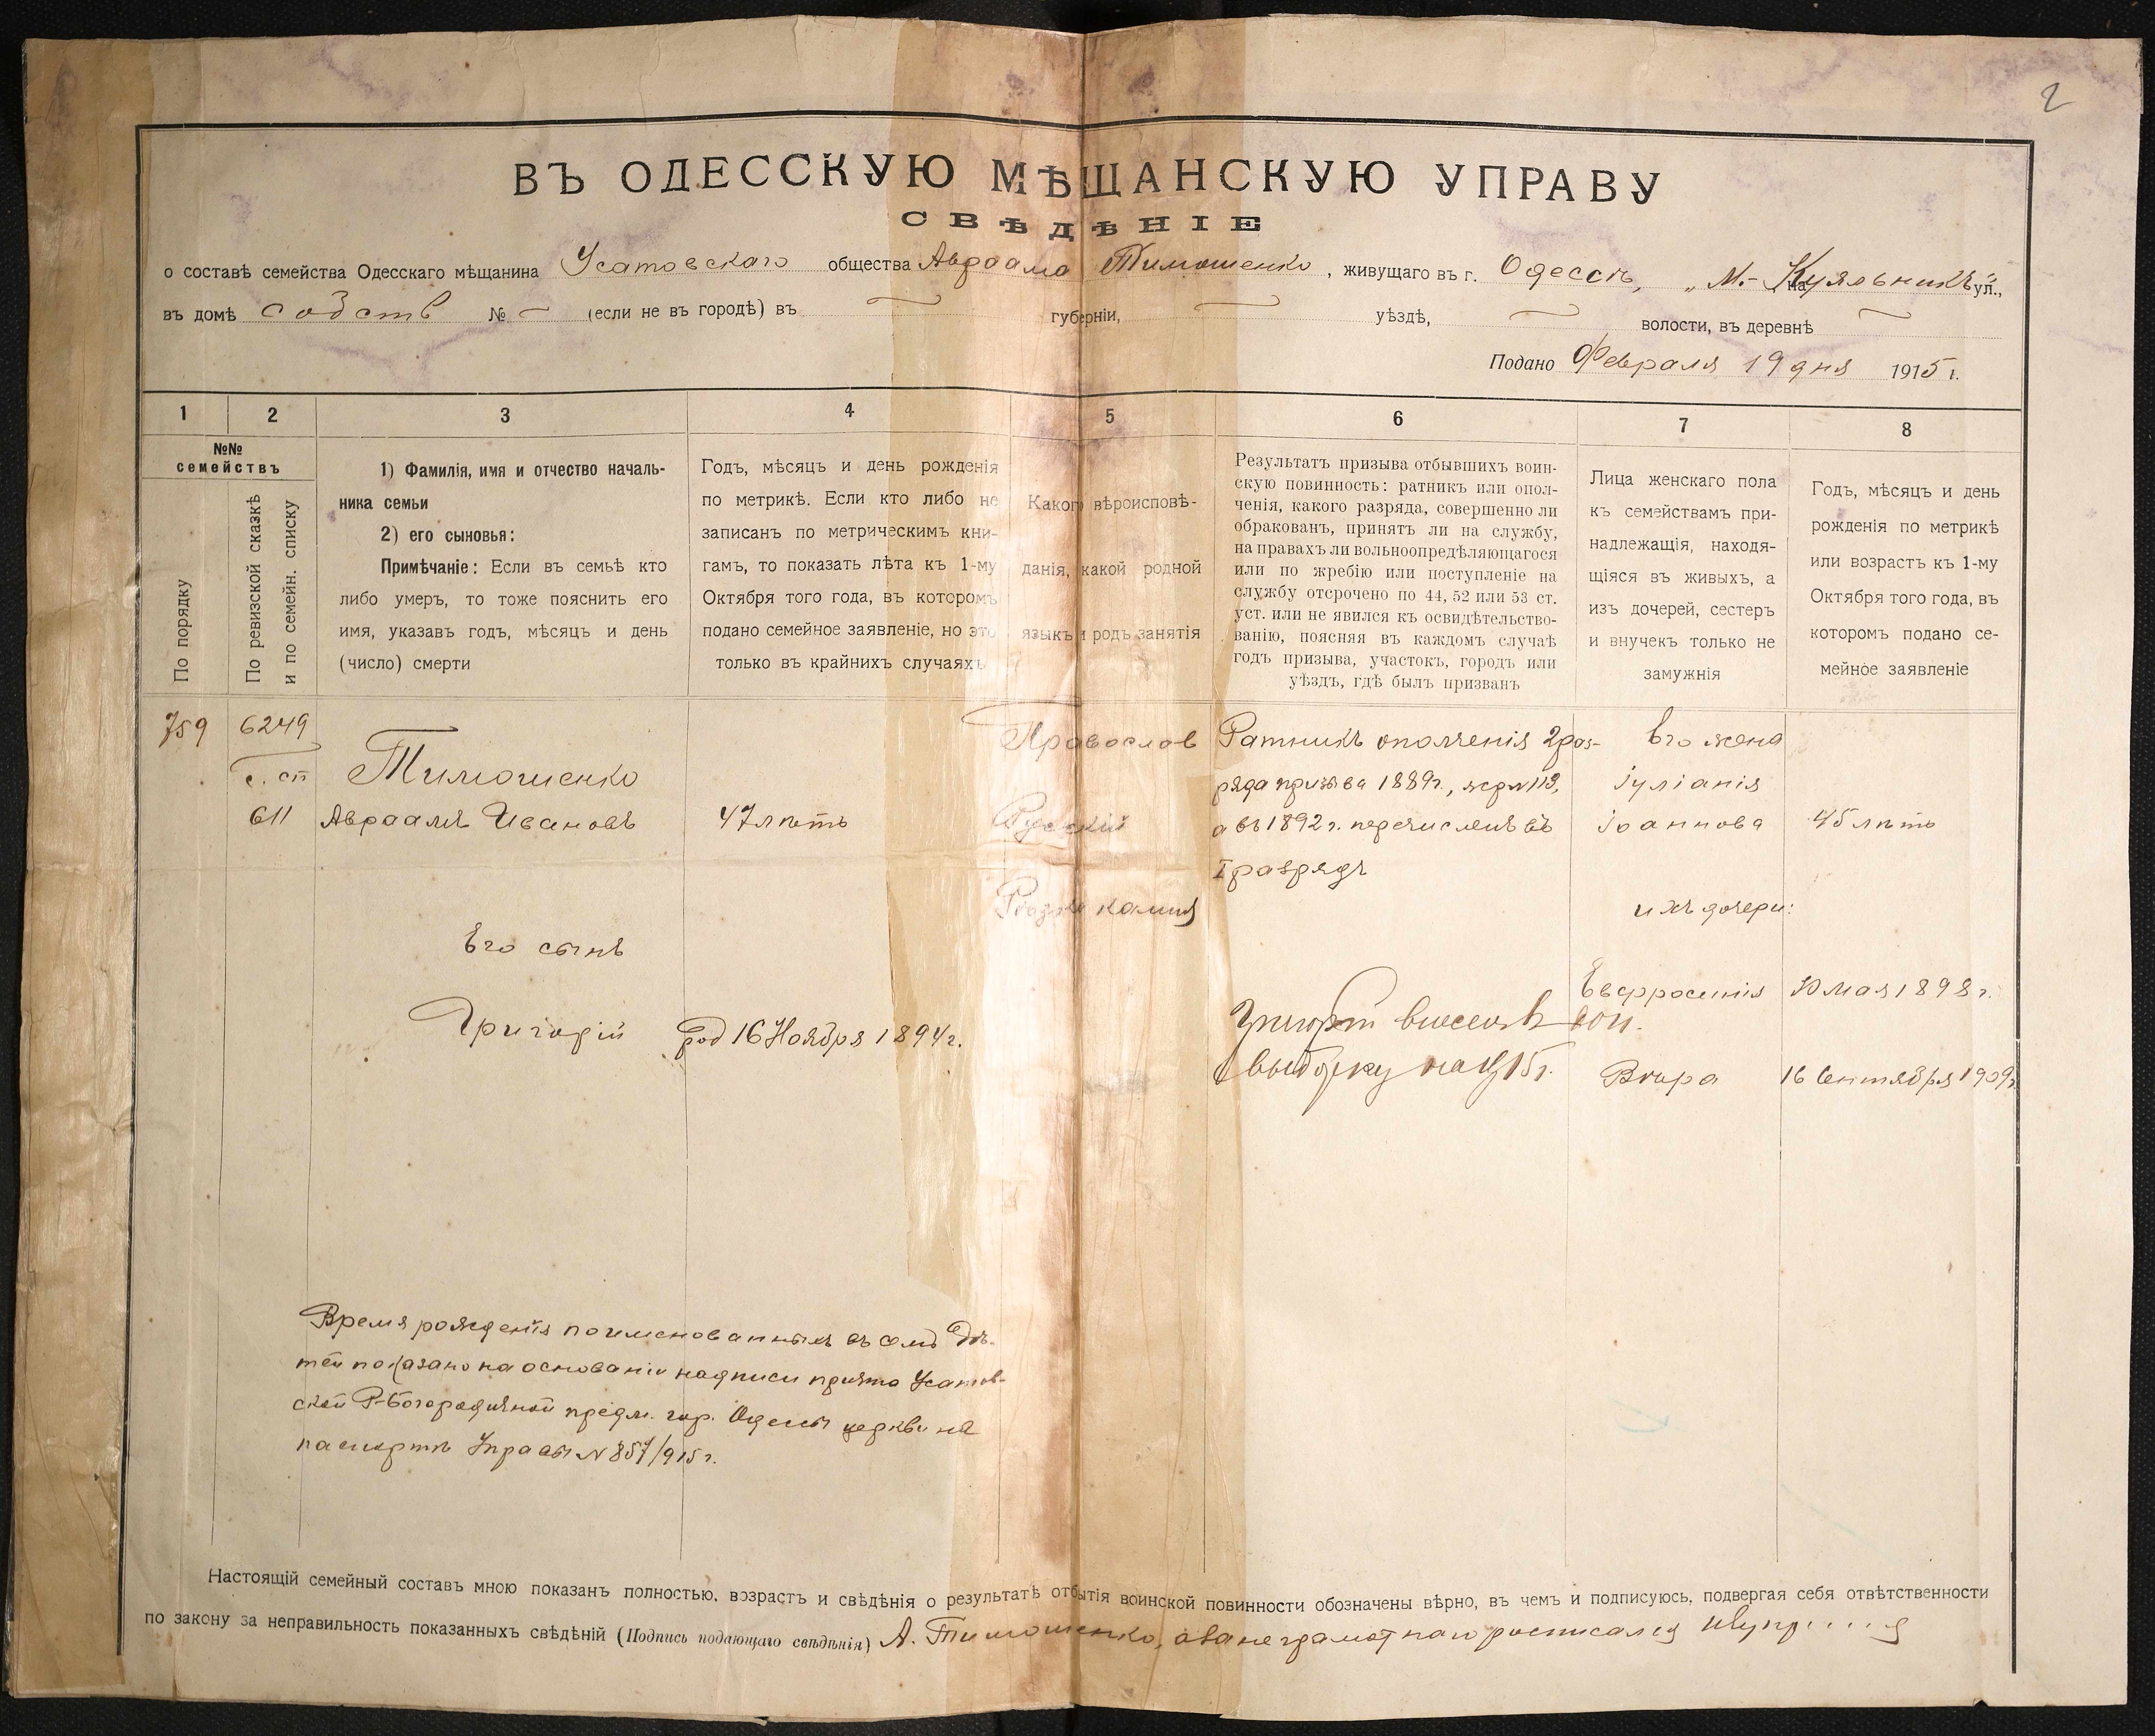 2
ВЪ ОДЕССКУЮ МѢЩАНСКУЮ УПРАВУ
СВѢДѢНІЕ
о составѣ семейства Одесскаго мѣщанина Усатовскаго общества Авраама Тимошенко, живущаго въ г. Одессѣ, „М.-Куяльникъ" на ул.,
въ домѣ собств № — (если не въ городѣ) въ — губерніи, — уѣздѣ, — волости, въ деревнѣ —
Подано Февраля 19 дня 1915 г.
1 2 3 4 5 6 7 8
№№
семействъ
По порядку
По ревизской сказкѣ
и по семейн. списку
1) Фамилія, имя и отчество началь-
ника семьи
2) его сыновья:
Примѣчаніе: Если въ семьѣ кто
либо умеръ, то тоже пояснить его
имя, указавъ годъ, мѣсяцъ и день
(число) смерти
Годъ, мѣсяцъ и день рожденія
по метрикѣ. Если кто либо не
записанъ по метрическимъ кни-
гамъ, то показать лѣта къ 1-му
Октября того года, въ которомъ
подано семейное заявленіе, но это
только въ крайнихъ случаяхъ
Какого вѣроисповѣ-
данія, какой родной
языкъ и родъ занятія
Результатъ призыва отбывшихъ воин-
скую повинность: ратникъ или опол-
ченія, какого разряда, совершенно ли
обракованъ, принятъ ли на службу,
на правахъ ли вольноопредѣляющагося
или по жребію или поступленіе на
службу отсрочено по 44, 52 или 53 ст.
уст. или не явился къ освидѣтельство-
ванію, поясняя въ каждомъ случаѣ
годъ призыва, участокъ, городъ или
уѣздъ, гдѣ былъ призванъ
Лица женскаго пола
къ семействамъ при-
надлежащія, находя-
щіяся въ живыхъ, а
изъ дочерей, сестеръ
и внучекъ только не
замужнія
Годъ, мѣсяцъ и день
рожденія по метрикѣ
или возрастъ къ 1-му
Октября того года, въ
которомъ подано се-
мейное заявленіе
759
6249
с. сп
611
Тимошенко
Авраамъ Ивановъ
47 лѣтъ
Православ
Русскій
Рѣзка камня
Ратникъ ополченія 2 раз-
ряда призыва 1889г., жер № 113,
а въ 1892 г. перечисленъ въ
I разрядъ
Его жена
Іуліанія
Іоаннова
45 лѣтъ
ихъ дочери:
Его сынъ
Григорій
род 16 Ноября 1894 г.
Григорій внесенъ въ
выборку на 1915 г.
Евфросинія
10 мая 1898 г.
Вѣра
16 Сентября 1909 г.
Время рожденія поименованныхъ въ семъ дѣ-
тей показано на основаніи надписи причта Усатов-
ской Р-Богородичной предм. гор. Одессы церкви на
паспортѣ Управы № 857/915 г.
Настоящій семейный составъ мною показанъ полностью, возрастъ и свѣдѣнія о результатѣ отбытія воинской повинности обозначены вѣрно, въ чемъ и подписуюсь, подвергая себя отвѣтственности
по закону за неправильность показанныхъ свѣдѣній (Подпись подающаго свѣдѣнія) А. Тимошенко, а за неграмотнаго росписался